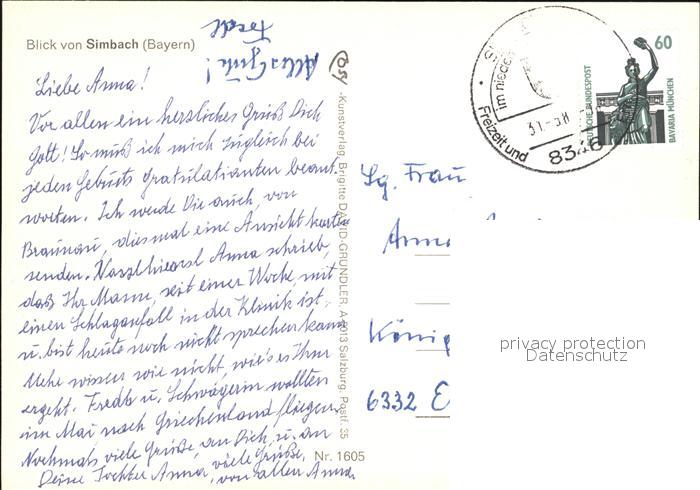 Blick von Simbach (Bayern)
Alles Gute!
Liebe Anna!
Vor allen ein herzliches Grüß Dich
Gott! So muß ich mich zugleich bei
jeden Geburts Gratulatianten beant-
worten. Ich werde Die auch, von
Braunau, diesmal eine Ansicht karte
senden. Anna schrieb,
daß Ihr Mann, seit einer Woche, mit
einen Schlaganfall in der Klinik ist,
u. bist heute noch nicht sprechen kann
Mehr wissen wir nicht, wie's es Ihm
ergeht. u. Schwägerin wollten
im Mai nach Griechenland fliegen.
Nochmals viele Grüße, an Dich, u. an
Deine Tochter Anna, viele Grüße,
von allen Anna
-Kunstverlag, Brigitte DAVID-GRÜNDLER, A-5013 Salzburg, Postf. 35
Nr. 1605
im nieder
Freizeit und
8346
60
DEUTSCHE BUNDESPOST
BAVARIA MÜNCHEN
Sg. Frau
Anna
König
6332 E
privacy protection
Datenschutz